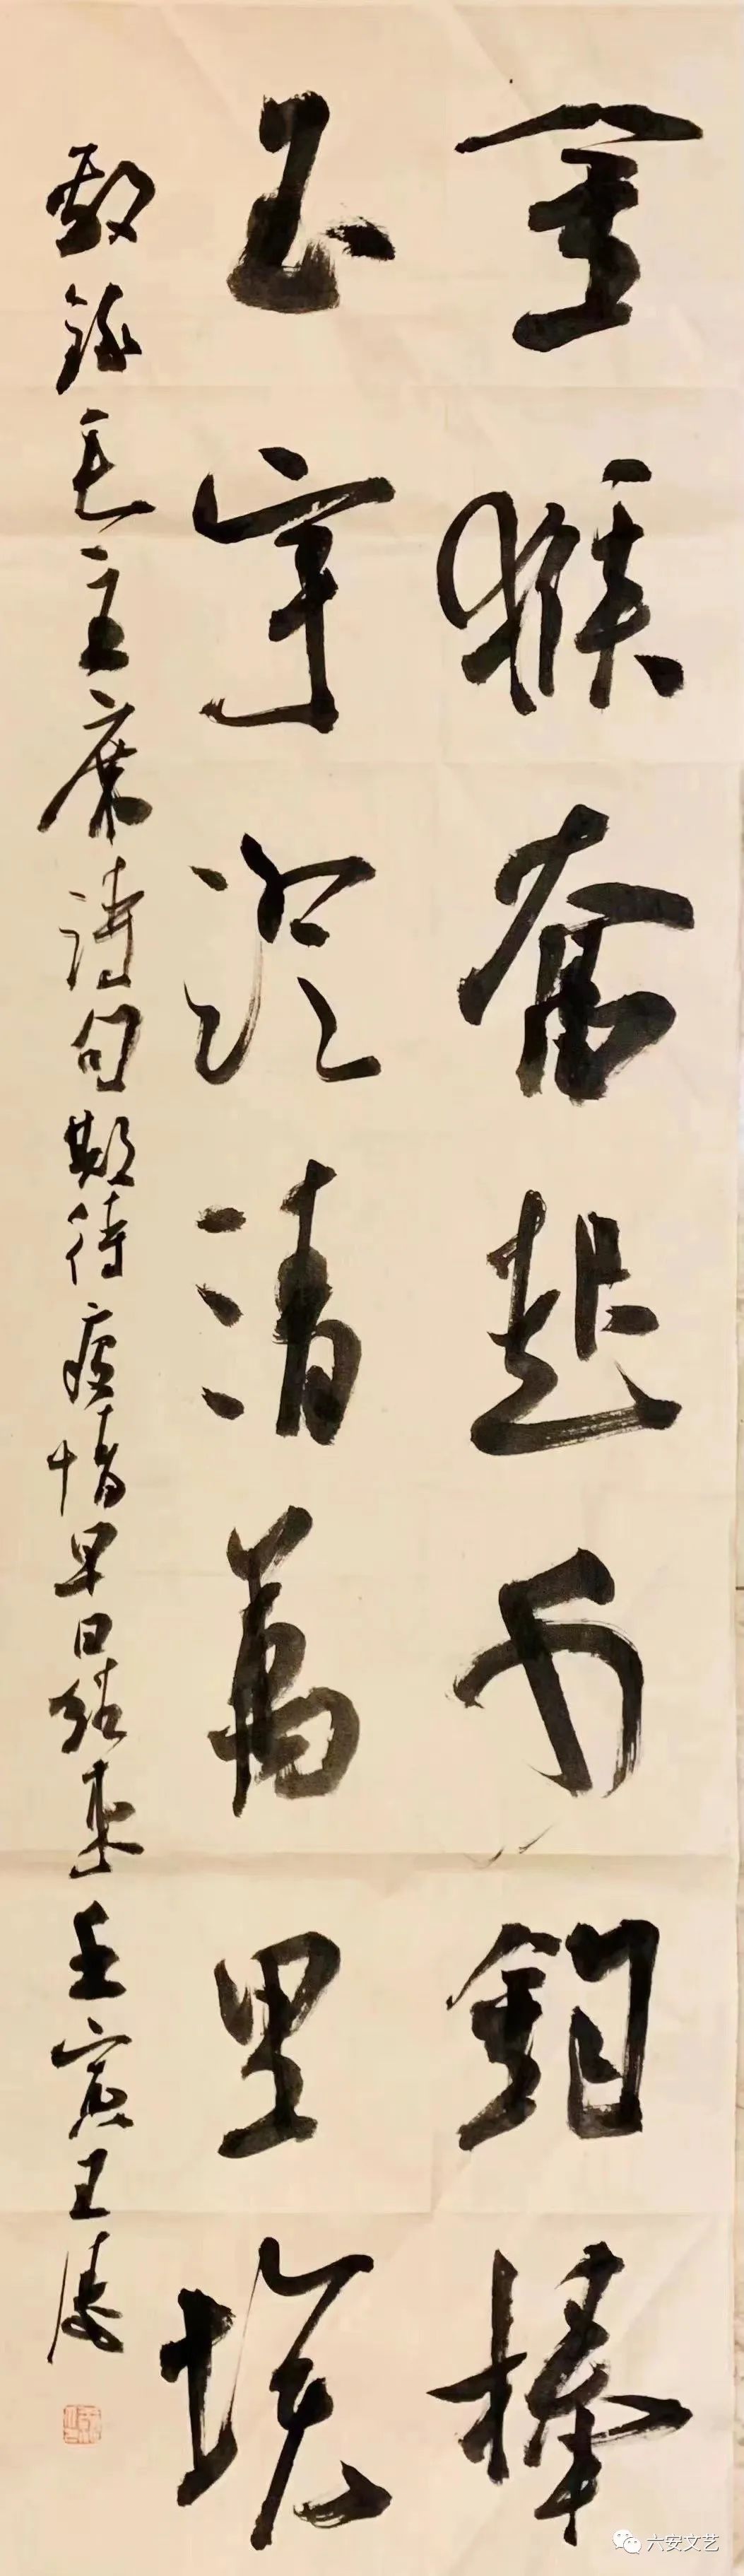 金猴奮起千鈞棒
玉宇澄清萬里埃
敬錄毛主席詩句期待疫情早日結束壬寅王
六安文艺